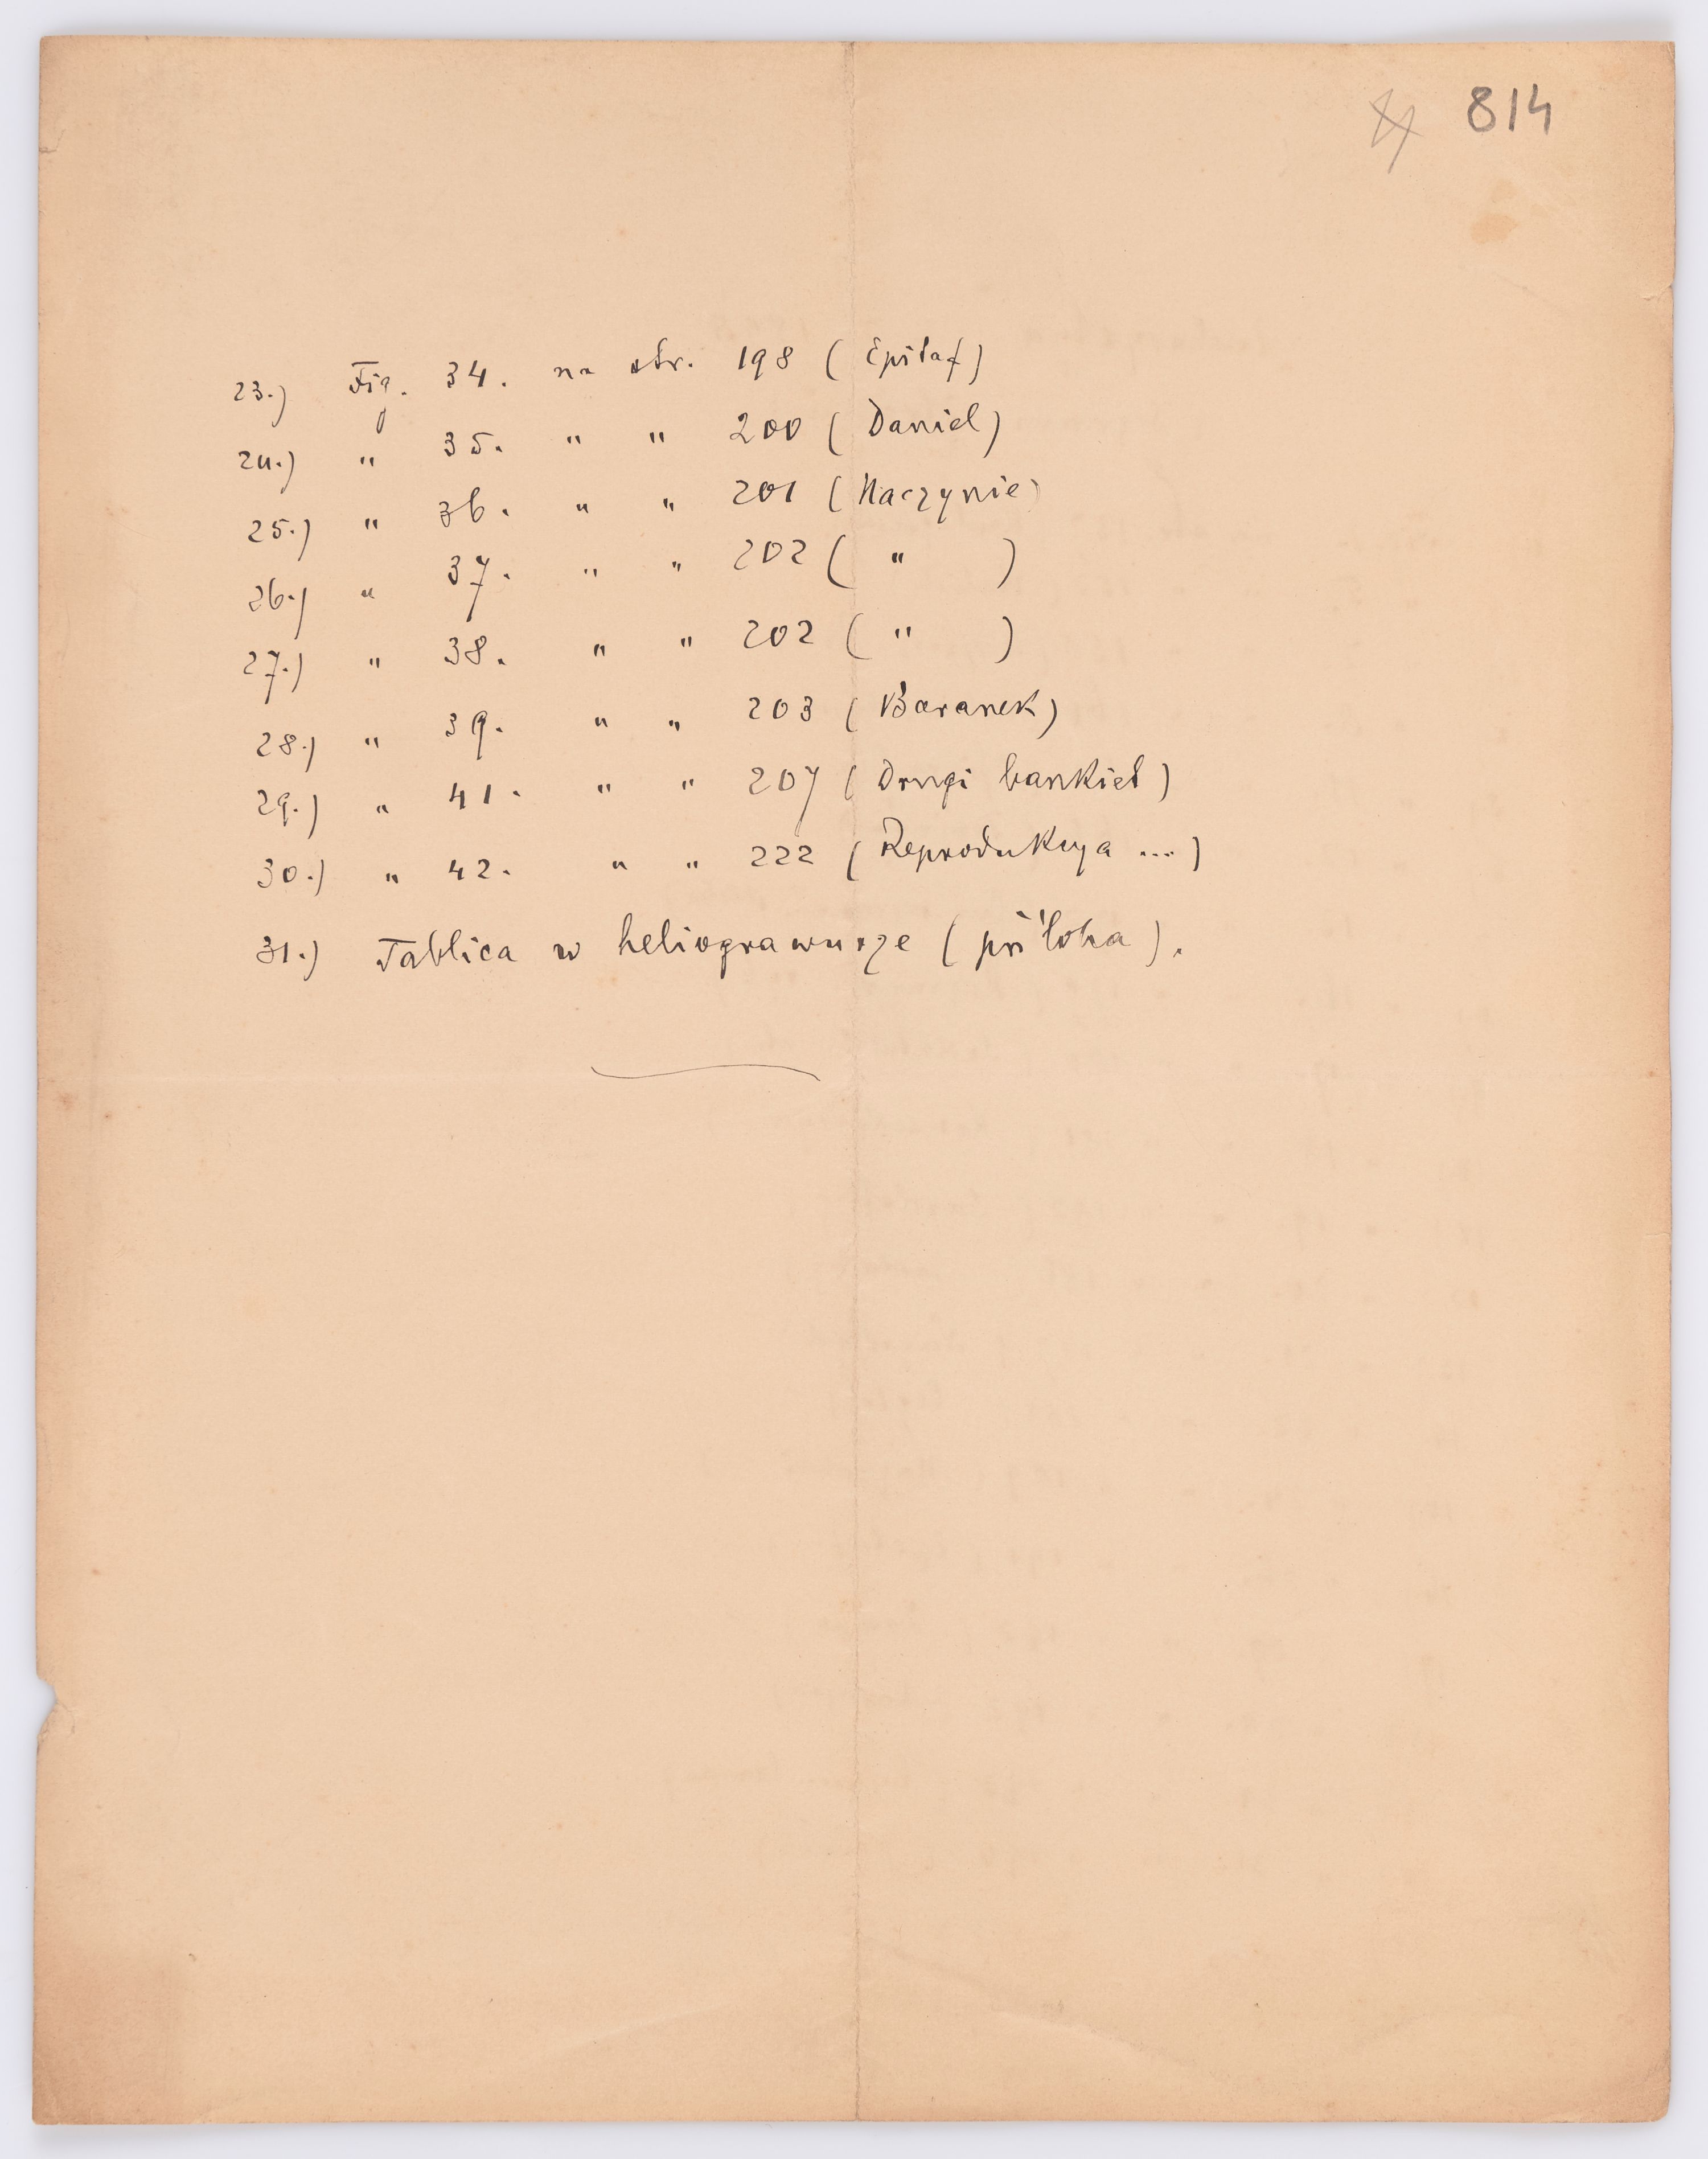 814
23.) Fig. 34. na str. 198 (Epitaf)
24.) " 35. " " 200 (Daniel)
25.) " 36. " " 201 (Naczynie)
26.) " 37. " " 202 ( " )
27.) " 38. " " 202 ( " )
28.) " 39. " " 203 (Baranek)
29.) " 41. " " 207 (Drugi bankiet)
30.) " 42. " " 222 (Reprodukcya ...)
31.) Tablica w heliograwurze (příloha).